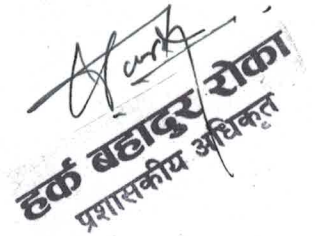 हर्क बहादुर रोका
प्रशासकीय अधिकृत